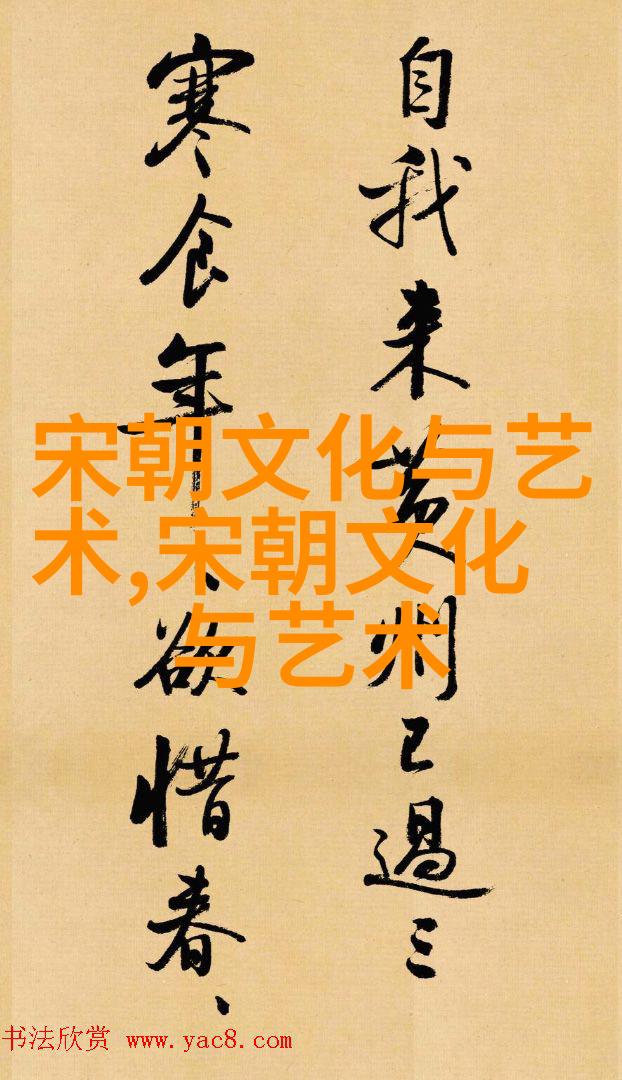 自我来黄州已過三
寒食年、欲惜春、
宋朝文化与艺
术,宋朝文化
与艺术
书法欣赏 www.yac8.com